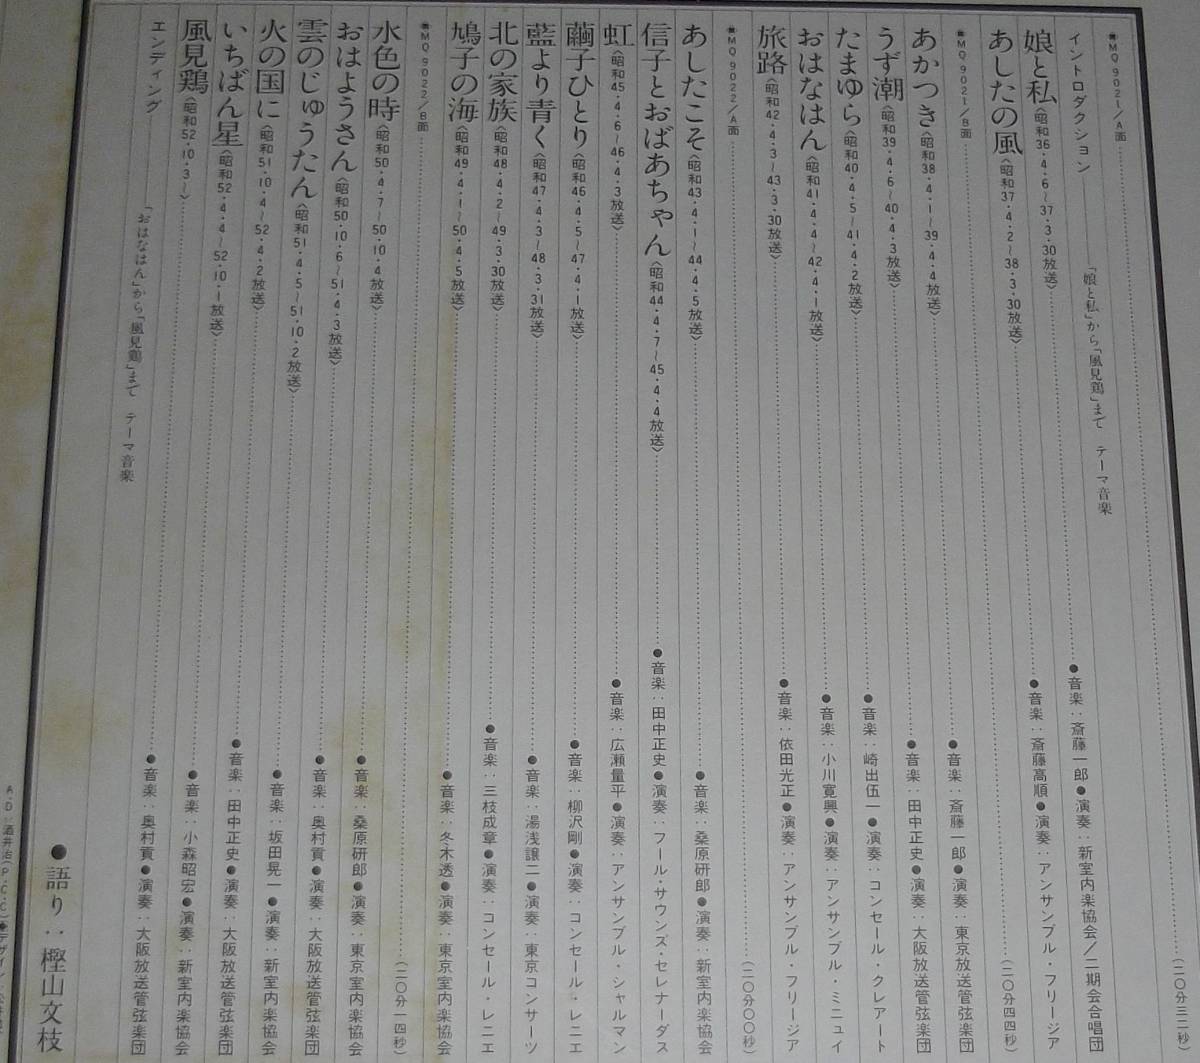 ■MQ 9021/A面 (二〇分三二秒)
イントロダクション 「娘と私」から「風見鶏」まで テーマ音楽
娘と私〈昭和36・4・6〜37・3・30放送〉 ●音楽：斎藤一郎●演奏：新室内楽協会/二期会合唱団
あしたの風〈昭和37・4・2〜38・3・30放送〉 ●音楽：斎藤高順●演奏：アンサンブル・フリージア
■MQ 9021/B面 (二〇分四四秒)
あかつき〈昭和38・4・1〜39・4・4放送〉 ●音楽：斎藤一郎●演奏：東京放送管弦楽団
うず潮〈昭和39・4・6〜40・4・3放送〉 ●音楽：田中正史●演奏：大阪放送管弦楽団
たまゆら〈昭和40・4・5〜41・4・2放送〉 ●音楽：崎出伍一●演奏：コンセール・クレアート
おはなはん〈昭和41・4・4〜42・4・1放送〉 ●音楽：小川寛興●演奏：アンサンブル・ミニュイ
旅路〈昭和42・4・3〜43・3・30放送〉 ●音楽：依田光正●演奏：アンサンブル・フリージア
■MQ 9022/A面 (二〇分〇〇秒)
あしたこそ〈昭和43・4・1〜44・4・5放送〉 ●音楽：桑原研郎●演奏：新室内楽協会
信子とおばあちゃん〈昭和44・4・7〜45・4・4放送〉 ●音楽：田中正史●演奏：フール・サウンズ・セレナーダス
虹〈昭和45・4・6〜46・4・3放送〉 ●音楽：広瀬量平●演奏：アンサンブル・シャルマン
繭子ひとり〈昭和46・4・5〜47・4・1放送〉 ●音楽：柳沢剛●演奏：コンセール・レニエ
藍より青く〈昭和47・4・3〜48・3・31放送〉 ●音楽：湯浅譲二●演奏：東京コンサーツ
北の家族〈昭和48・4・2〜49・3・30放送〉 ●音楽：三枝成章●演奏：コンセール・レニエ
鳩子の海〈昭和49・4・1〜50・4・5放送〉 ●音楽：冬木透●演奏：東京室内楽協会
■MQ 9022/B面 (二〇分一四秒)
水色の時〈昭和50・4・7〜50・10・4放送〉 ●音楽：桑原研郎●演奏：東京室内楽協会
おはようさん〈昭和50・10・6〜51・4・3放送〉 ●音楽：奥村貢●演奏：大阪放送管弦楽団
雲のじゅうたん〈昭和51・4・5〜51・10・2放送〉 ●音楽：坂田晃一●演奏：新室内楽協会
火の国に〈昭和51・10・4〜52・4・2放送〉 ●音楽：田中正史●演奏：大阪放送管弦楽団
いちばん星〈昭和52・4・4〜52・10・1放送〉 ●音楽：小森昭宏●演奏：新室内楽協会
風見鶏〈昭和52・10・3〜〉 ●音楽：奥村貢●演奏：大阪放送管弦楽団
エンディング 「おはなはん」から「風見鶏」まで テーマ音楽
●語り：樫山文枝
A・D：酒井治(P・C・C)●デザイン：